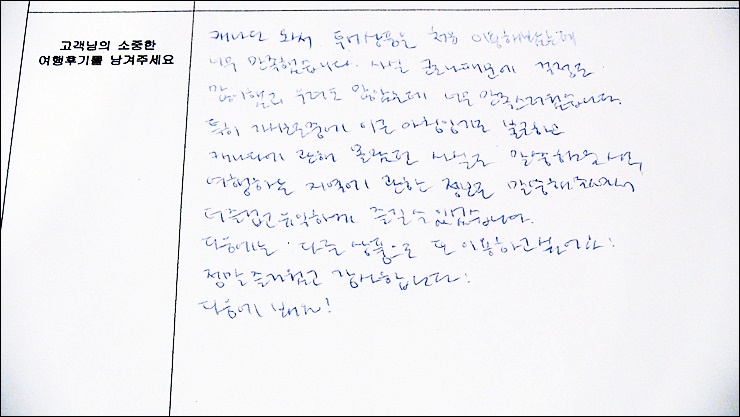 고객님의 소중한
여행후기를 남겨주세요
캐나다 와서 투어상품을 처음 이용해봤는데
너무 만족했습니다. 사실 코로나때문에 걱정도
많이했고 우려도 많았는데 너무 만족스러웠습니다.
특히 가시는중에 이른 아침임에도 불구하고
캐나다에 관해 몰랐던 사실도 말씀해주시고,
여행하는 지역에 관한 정보를 말씀해주셔서
더 즐겁고 유익하게 즐길 수 있었습니다.
다음에는 다른 상품으로 또 이용하고싶어요!
정말 즐거웠고 감사합니다!
다음에 봬요!